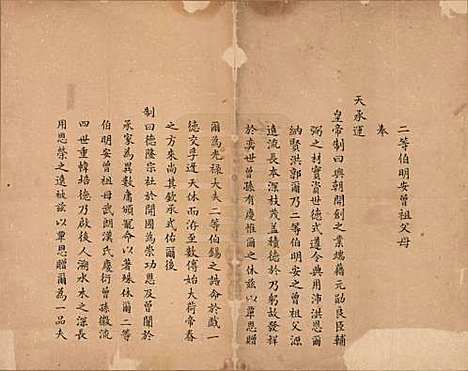 二等伯明安曾祖父母
奏
天承運
皇帝制曰興朝開創之業端藉元勛良臣輔
弼之材實資世德式遵令典用沛洪恩爾
納賢洪郭爾乃二等伯明安之曾祖父源
遠流長本深枝茂蓋積德於乃躬故發祥
於奕世曾孫有慶惟爾之休茲以覃恩贈
爾為光祿大夫二等伯錫之誥命於戲一
德交孚遲天休而洊至數傳始大荷帝眷
之方來尚其欽承式佑爾後
制曰德隆宗社於開國為崇功恩及曾閫於
承家為異數庸頒寵命以著殊休爾二等
伯明安曾祖母武朗漢氏慶衍曾孫徽流
四世重幃培德乃啟後人溯水木之深長
用恩榮之遠被茲以覃恩贈爾為一品夫